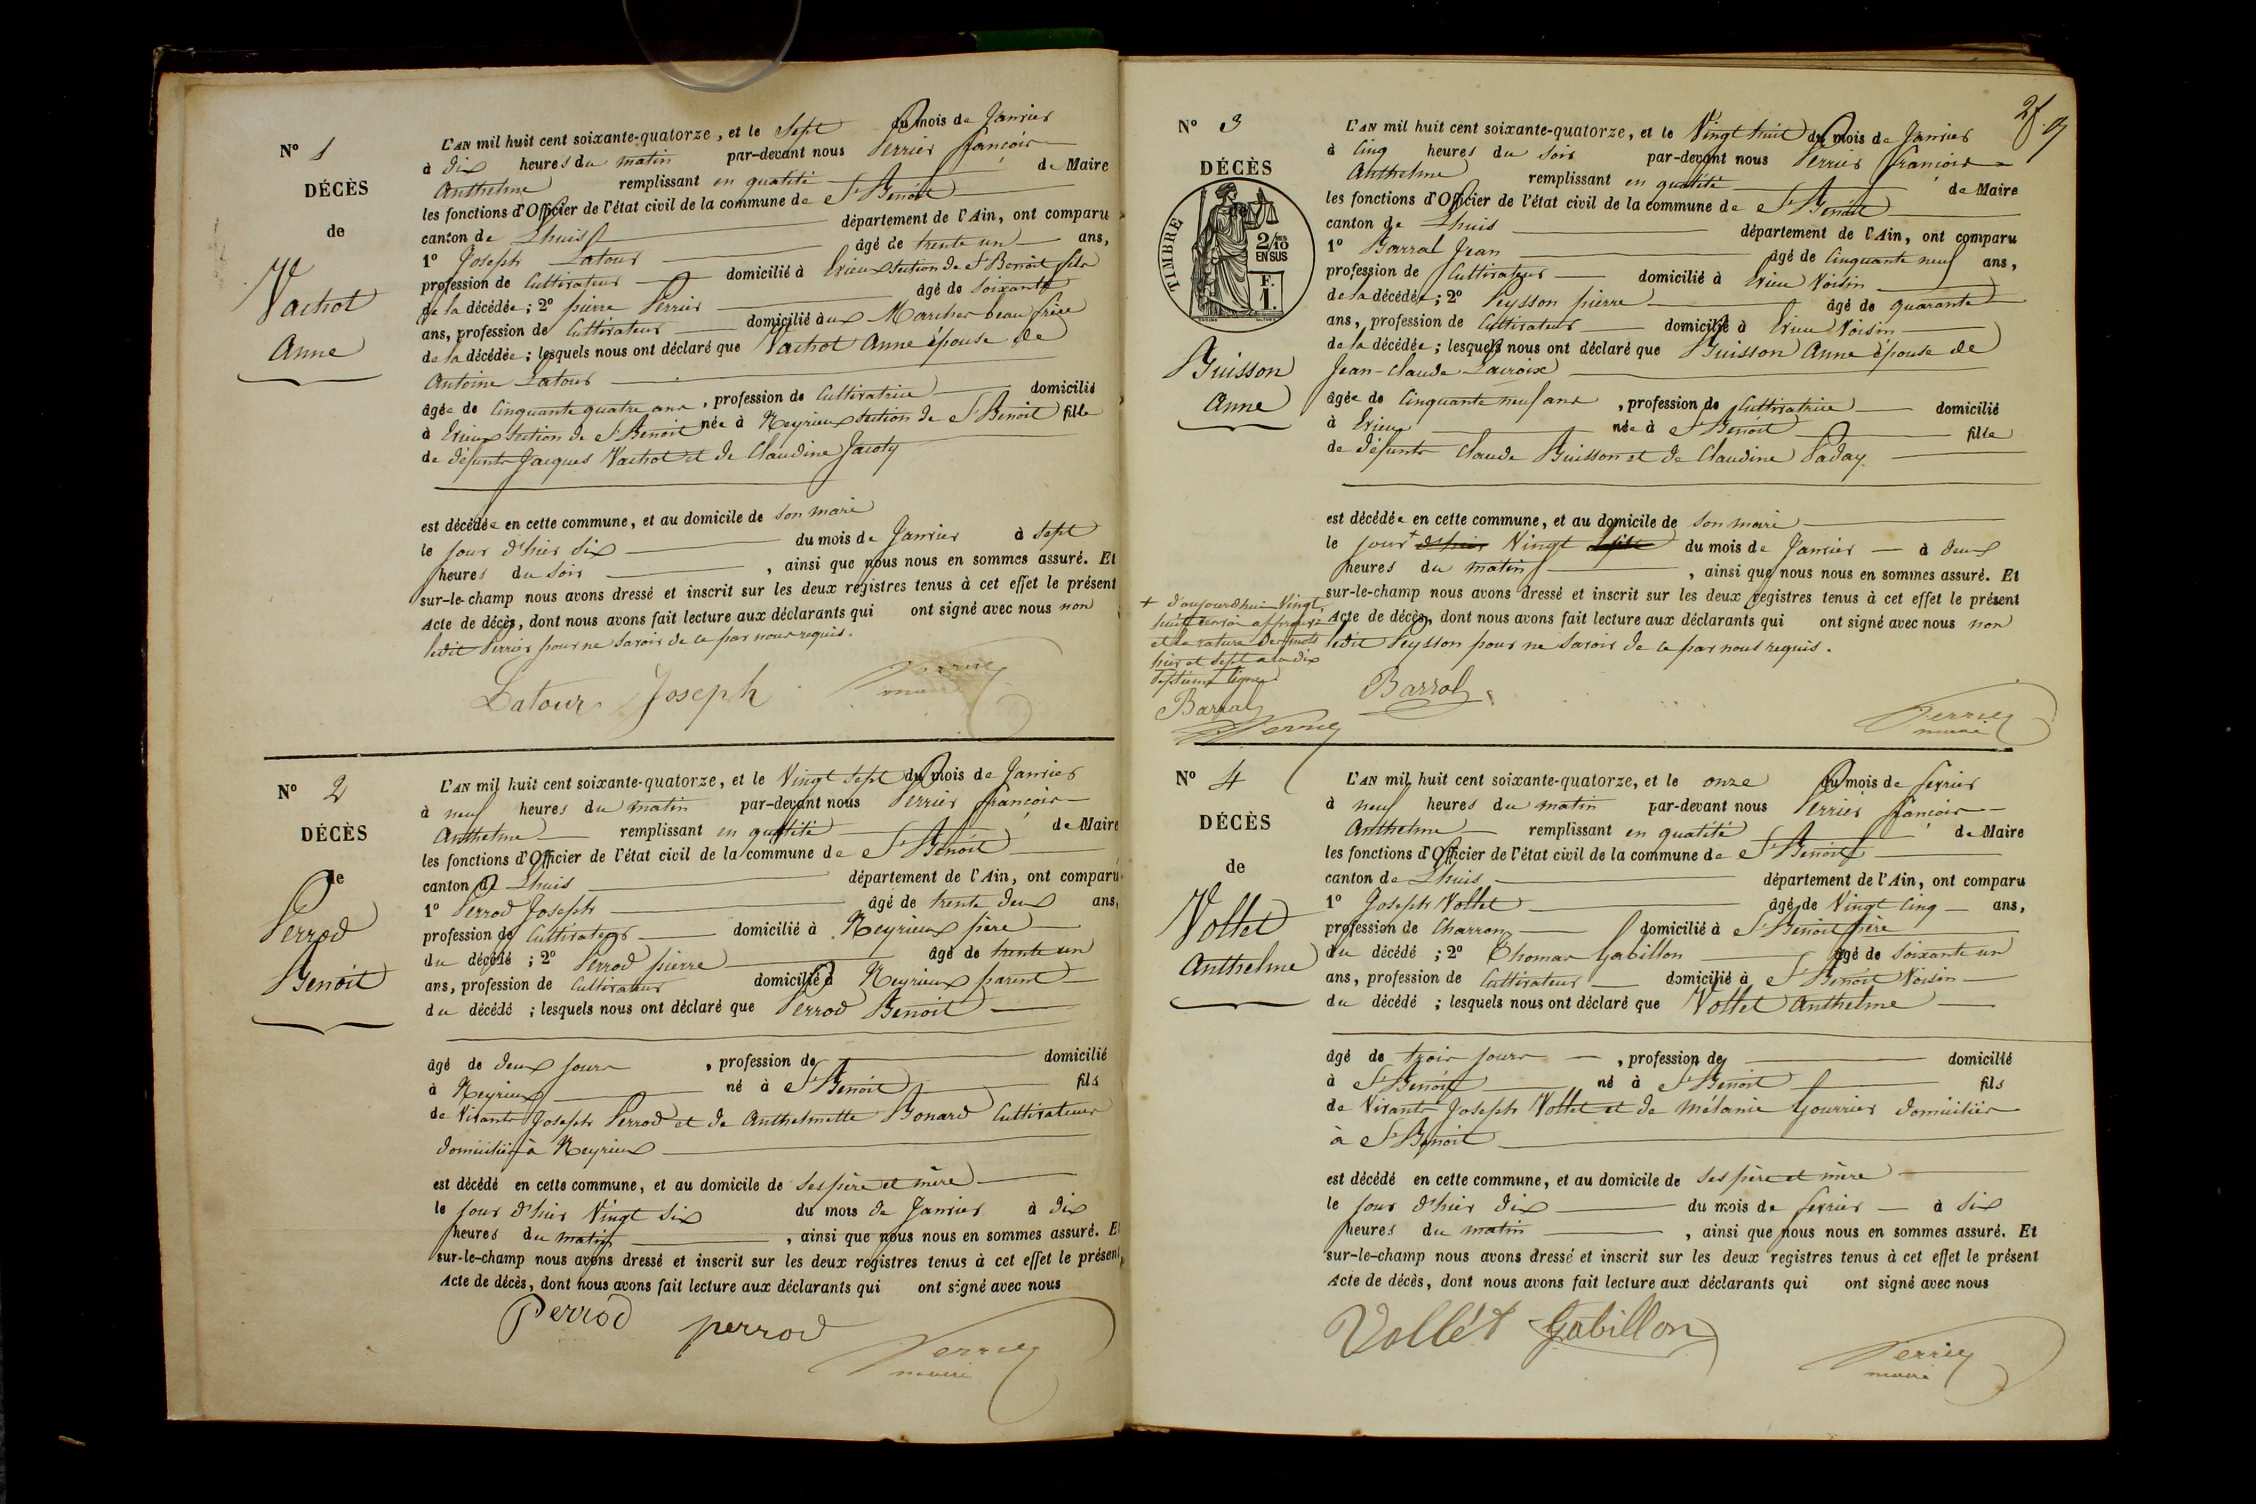 N° 1
DÉCÈS
de
Vachot
Anne
L'AN mil huit cent soixante-quatorze, et le sept du mois de Janvier
à dix heures du matin par-devant nous Perrier françois
Anthelme remplissant en qualité de Maire
les fonctions d'Officier de l'état civil de la commune de St Benoit
canton de Lhuis département de l'Ain, ont comparu
1° Joseph Latour âgé de trente un ans,
profession de Cultivateur domicilié à Evieux section de St Benoit fils
de la décédée ; 2° pierre Perrier âgé de soixante
ans, profession de Cultivateur domicilié aux Marches beau frère
de la décédée ; lesquels nous ont déclaré que Vachot Anne épouse de
Antoine Latour
âgée de Cinquante quatre ans, profession de Cultivatrice domicilié
à Evieux section de St Benoit née à Neyrieux section de St Benoit fille
de défunts Jacques Vachot et de Claudine Jacoty
est décédée en cette commune, et au domicile de son mari
le jour d'hier six du mois de Janvier à sept
heures du soir, ainsi que nous nous en sommes assuré. Et
sur-le-champ nous avons dressé et inscrit sur les deux registres tenus à cet effet le présent
Acte de décès, dont nous avons fait lecture aux déclarants qui ont signé avec nous non
ledit Perrier pour ne savoir de ce par nous requis.
Latour Joseph Perrier
maire
N° 2
DÉCÈS
de
Perrod
Benoit
L'AN mil huit cent soixante-quatorze, et le Vingt sept du mois de Janvier
à neuf heures du matin par-devant nous Perrier françois
Anthelme remplissant en qualité de Maire
les fonctions d'Officier de l'état civil de la commune de St Benoit
canton de Lhuis département de l'Ain, ont comparu
1° Perrod Joseph âgé de trente deux ans,
profession de Cultivateur domicilié à Neyrieux père
du décédé ; 2° Perrod pierre âgé de trente un
ans, profession de Cultivateur domicilié à Neyrieux parent
du décédé ; lesquels nous ont déclaré que Perrod Benoit
âgé de deux jours, profession de domicilié
à Neyrieux né à St Benoit fils
de Vivants Joseph Perrod et de Anthelmette Bonard Cultivateurs
domiciliés à Neyrieux
est décédé en cette commune, et au domicile de ses père et mère
le jour d'hier Vingt six du mois de Janvier à dix
heures du matin, ainsi que nous nous en sommes assuré. Et
sur-le-champ nous avons dressé et inscrit sur les deux registres tenus à cet effet le présent
Acte de décès, dont nous avons fait lecture aux déclarants qui ont signé avec nous
Perrod perrod Perrier
maire
2f.
N° 3
DÉCÈS
TIMBRE
2/10 EN SUS
F. 1.
Buisson
Anne
L'AN mil huit cent soixante-quatorze, et le Vingt huit du mois de Janvier
à Cinq heures du soir par-devant nous Perrier françois
Anthelme remplissant en qualité de Maire
les fonctions d'Officier de l'état civil de la commune de St Benoit
canton de Lhuis département de l'Ain, ont comparu
1° Barral Jean âgé de Cinquante neuf ans,
profession de Cultivateur domicilié à Evieu Voisin
de la décédée ; 2° Peysson pierre âgé de quarante
ans, profession de Cultivateur domicilié à Evieu Voisin
de la décédée ; lesquels nous ont déclaré que Buisson Anne épouse de
Jean-Claude Lacroix
âgée de Cinquante neuf ans, profession de Cultivatrice domicilié
à Evieu née à St Benoit fille
de défunts Claude Buisson et de Claudine Paday
est décédée en cette commune, et au domicile de son mari
le jour + d'hier Vingt sept du mois de Janvier à deux
heures du matin, ainsi que nous nous en sommes assuré. Et
sur-le-champ nous avons dressé et inscrit sur les deux registres tenus à cet effet le présent
Acte de décès, dont nous avons fait lecture aux déclarants qui ont signé avec nous non
ledit Peysson pour ne savoir de ce par nous requis.
+ d'aujourd'hui Vingt
huit renvoi approuvé
et la rature des mots
hier et sept a la dix
septième ligne
Barral
Perrier
Barral
Perrier
maire
N° 4
DÉCÈS
de
Vollet
Anthelme
L'AN mil huit cent soixante-quatorze, et le onze du mois de fevrier
à neuf heures du matin par-devant nous Perrier françois
Anthelme remplissant en qualité de Maire
les fonctions d'Officier de l'état civil de la commune de St Benoit
canton de Lhuis département de l'Ain, ont comparu
1° Joseph Vollet âgé de Vingt Cinq ans,
profession de Charron domicilié à St Benoit père
du décédé ; 2° Thomas Gabillon âgé de soixante un
ans, profession de Cultivateur domicilié à St Benoit Voisin
du décédé ; lesquels nous ont déclaré que Vollet Anthelme
âgé de trois jours, profession de domicilié
à St Benoit né à St Benoit fils
de Vivants Joseph Vollet et de Mélanie Gourrier domiciliés
à St Benoit
est décédé en cette commune, et au domicile de ses père et mère
le jour d'hier dix du mois de fevrier à six
heures du matin, ainsi que nous nous en sommes assuré. Et
sur-le-champ nous avons dressé et inscrit sur les deux registres tenus à cet effet le présent
Acte de décès, dont nous avons fait lecture aux déclarants qui ont signé avec nous
Vollét Gabillon Perrier
maire